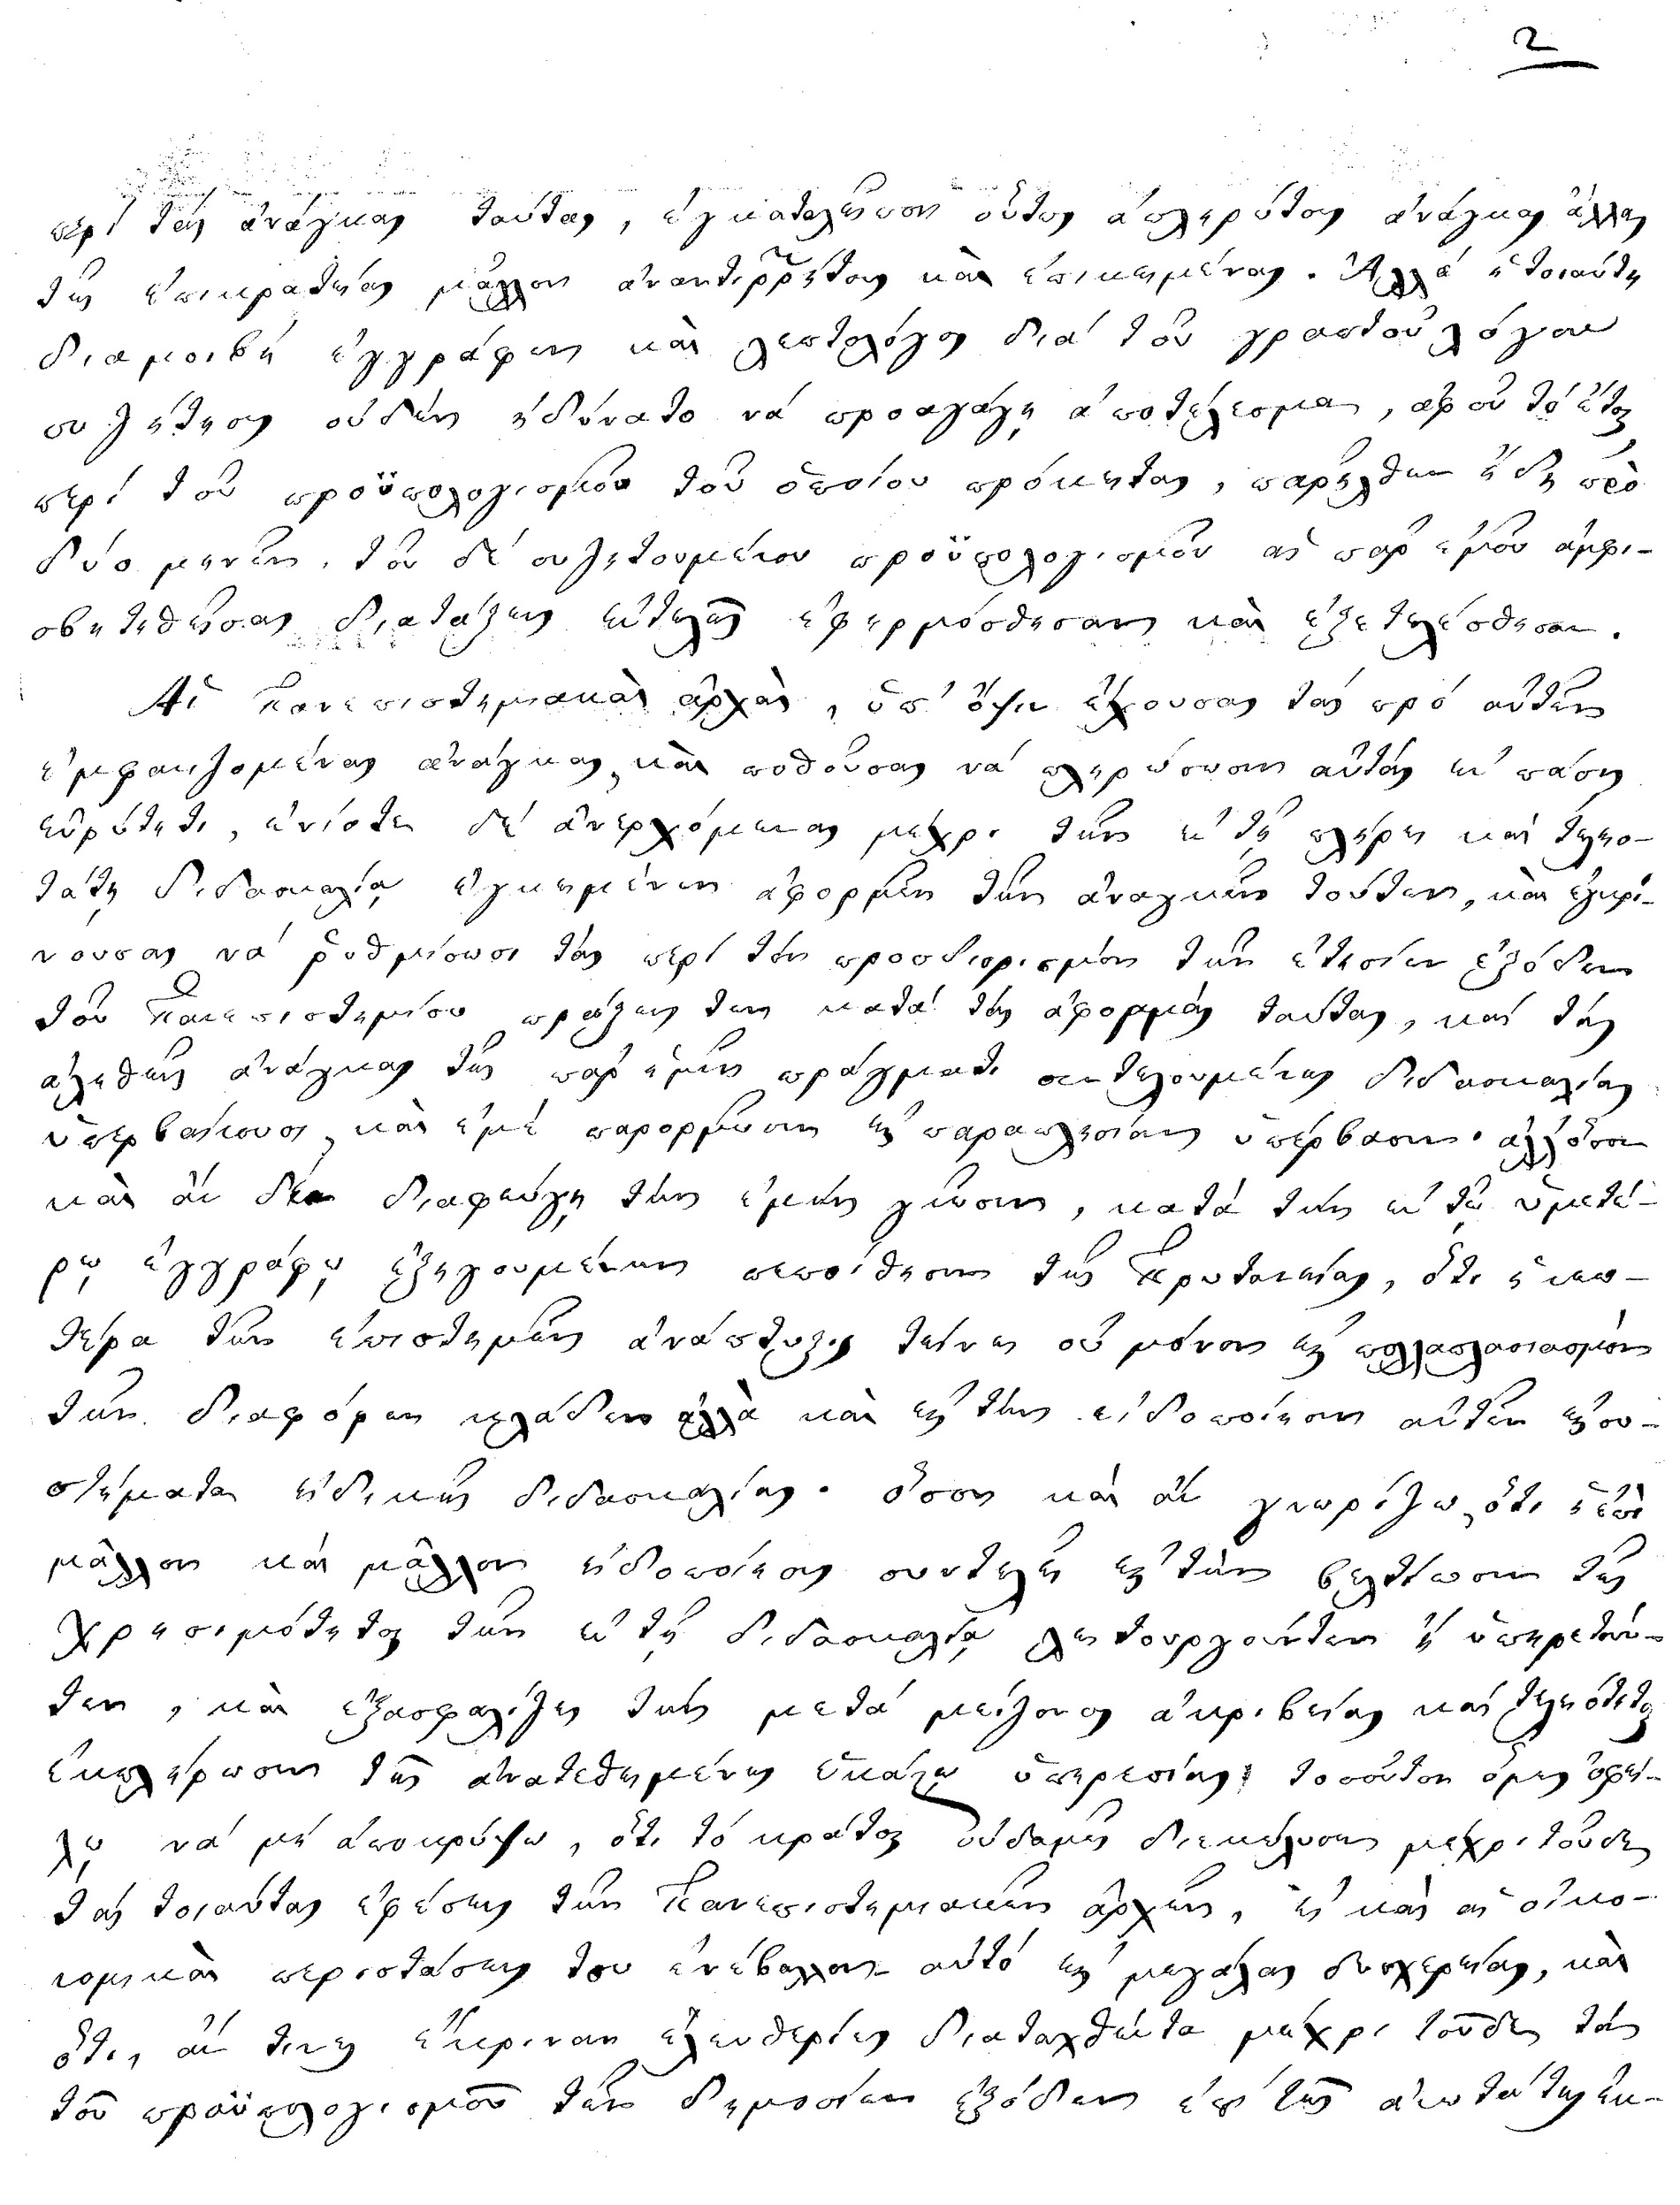 2
περὶ τὰς ἀνάγκας ταύτας, ἐγκατέλειπον οὕτως ἀπληρώτους ἀνάγκας ἄλλας
τῆς ἐπικρατείας μᾶλλον ἀναντιῤῥήτους καὶ ἐπικειμένας. Ἀλλὰ ἡ τοιαύτη
διαμοιβὴ ἐγγράφων καὶ λεπτολόγος διὰ τοῦ γραπτοῦ λόγου
συζήτησις οὐδὲν ἠδύνατο νὰ προαγάγῃ ἀποτέλεσμα, ἀφοῦ τὸ ἔτος
περὶ τοῦ προϋπολογισμοῦ τοῦ ὁποίου πρόκειται, παρῆλθεν ἤδη πρὸ
δύο μηνῶν, τοῦ δὲ συζητουμένου προϋπολογισμοῦ αἱ παρ' ἐμοῦ ἀμφι-
σβητηθεῖσαι διατάξεις ἐντελῶς ἐφηρμόσθησαν καὶ ἐξετελέσθησαν.
Αἱ Πανεπιστημιακαὶ ἀρχαὶ, ὑπ' ὄψιν ἔχουσαι τὰς πρὸ αὐτῶν
ἐμφανιζομένας ἀνάγκας, καὶ ποθοῦσαι νὰ πληρώσωσιν αὐτὰς ἐν πάσῃ
εὐρύτητι, ἐνίοτε δὲ ἀνερχόμεναι μέχρι τῶν ἐν τῇ πλήρει καὶ τελειο-
τάτῃ διδασκαλίᾳ ἐγκειμένων ἀφορμῶν τῶν ἀναγκῶν τούτων, καὶ ἐγκρί-
νουσαι νὰ ῥυθμίσωσι τὰς περὶ τὸν προσδιορισμὸν τῶν ἐτησίων ἐξόδων
τοῦ Πανεπιστημίου πράξεις των κατὰ τὰς ἀφορμὰς ταύτας, καὶ τὰς
ἀληθεῖς ἀνάγκας τῆς παρ' ἡμῖν πράγματι συντελουμένης διδασκαλίας
ὑπερβαίνουσι, καὶ ἐμὲ παρορμῶσιν εἰς παραπλησίαν ὑπέρβασιν· ἀλλ' ὅσον
καὶ ἂν δὲν διαφεύγῃ τὴν ἐμὴν γνῶσιν, κατὰ τὴν ἐν τῷ ὑμετέ-
ρῳ ἐγγράφῳ ἐξηγουμένην πεποίθησιν τῆς Πρυτανείας, ὅτι ἡ νεω-
τέρα τῶν ἐπιστημῶν ἀνάπτυξις τείνει οὐ μόνον εἰς πολλαπλασιασμὸν
τῶν διαφόρων κλάδων ἀλλὰ καὶ εἰς τὴν εἰδοποίησιν αὐτῶν εἰς συ-
στήματα εἰδικῆς διδασκαλίας· ὅσον καὶ ἂν γνωρίζω, ὅτι ἡ ἐπὶ
μᾶλλον καὶ μᾶλλον εἰδοποίησις συντελεῖ εἰς τὴν βελτίωσιν τῆς
χρησιμότητος τῶν ἐν τῇ διδασκαλίᾳ λειτουργούντων ἢ ὑπηρετούν-
των, καὶ ἐξασφαλίζει τὴν μετὰ μείζονος ἀκριβείας καὶ τελειότητος
ἐκπλήρωσιν τῆς ἀνατεθειμένης ἑκάστῳ ὑπηρεσίας· τοσοῦτον ὅμως ὀφεί-
λω νὰ μὴ ἀποκρύψω, ὅτι τὸ κράτος οὐδαμῶς διεκώλυσεν μέχρι τοῦδε
τὰς τοιαύτας ἐφέσεις τῶν Πανεπιστημιακῶν ἀρχῶν, εἰ καὶ αἱ οἰκο-
νομικαὶ περιστάσεις του ἐνέβαλλον αὐτὸ εἰς μεγάλας δυσχερείας, καὶ
ὅτι, ἄν τινες ἔκριναν ἐλευθερίως διαταχθέντα μέχρι τοῦδε τὰ
τοῦ προϋπολογισμοῦ τῶν δημοσίων ἐξόδων ἐπὶ τῆς ἀνωτάτης ἐκ-